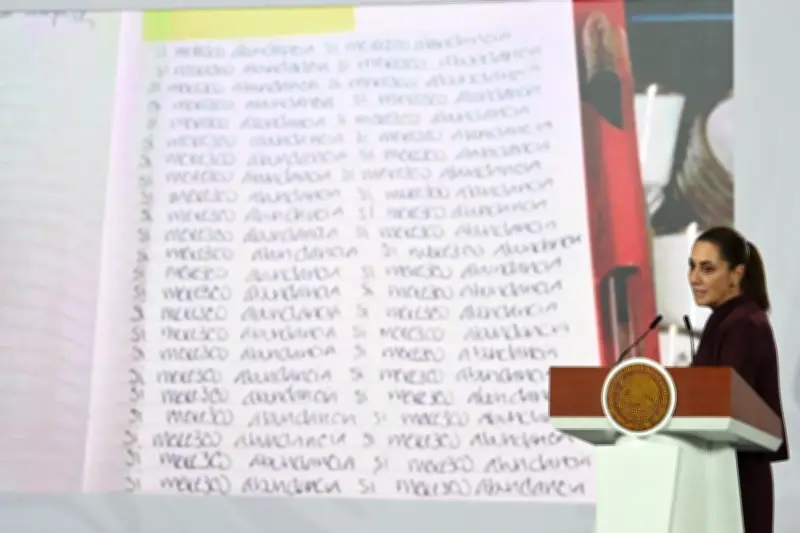 si merezco Abundancia si merezco Abundancia
si merezco Abundancia si merezco Abundancia
si merezco Abundancia si merezco Abundancia
si merezco Abundancia si merezco Abundancia
si merezco Abundancia si merezco Abundancia
si merezco Abundancia si merezco Abundancia
si merezco Abundancia si merezco Abundancia
si merezco Abundancia si merezco Abundancia
si merezco Abundancia si merezco Abundancia
si merezco Abundancia si merezco Abundancia
si merezco Abundancia si merezco Abundancia
si merezco Abundancia si merezco Abundancia
si merezco Abundancia si merezco Abundancia
si merezco Abundancia si merezco Abundancia
si merezco Abundancia si merezco Abundancia
si merezco Abundancia si merezco Abundancia
si merezco Abundancia si merezco Abundancia
si merezco Abundancia si merezco Abundancia
si merezco Abundancia si merezco Abundancia
si merezco Abundancia si merezco Abundancia
si merezco Abundancia si merezco Abundancia
si merezco Abundancia si merezco Abundancia
si merezco Abundancia si merezco Abundancia